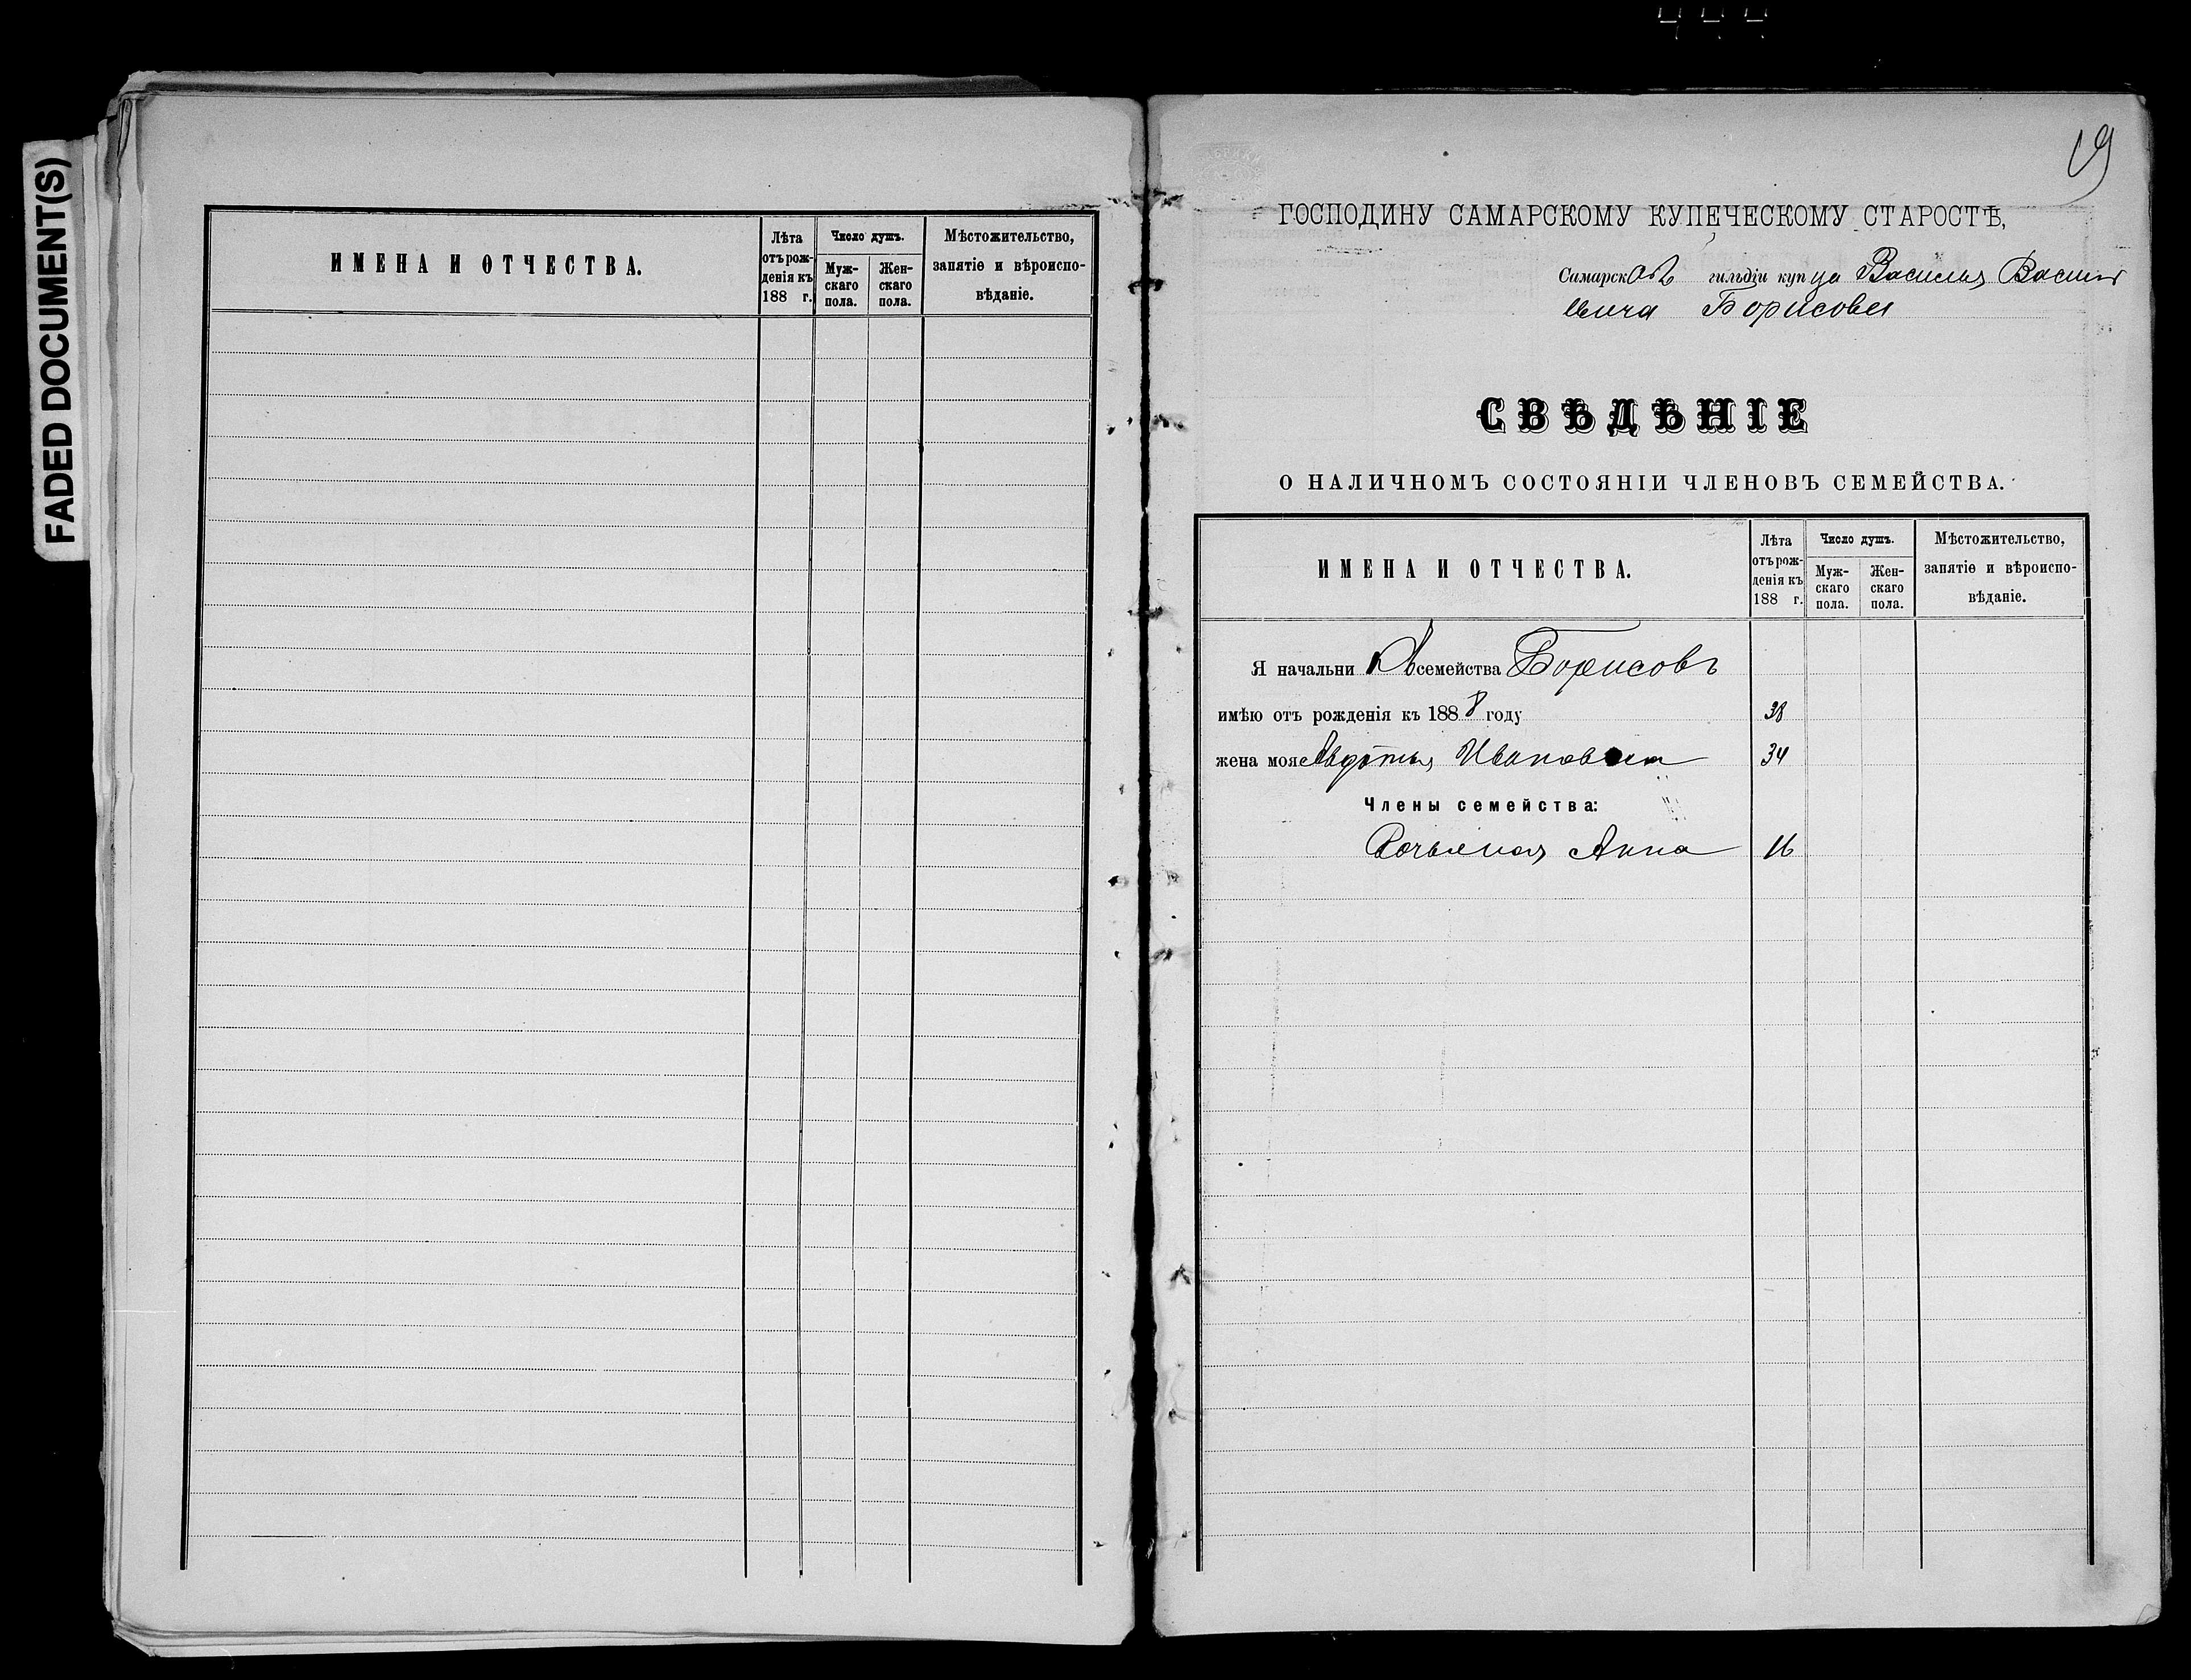 FADED DOCUMENT(S)
ИМЕНА И ОТЧЕСТВА.
Лѣта
отъ рож-
денія къ
188 г.
Число душъ.
Муж-
скаго
пола.
Жен-
скаго
пола.
Мѣстожительство,
занятіе и вѣроиспо-
вѣданіе.
19
ГОСПОДИНУ САМАРСКОМУ КУПЕЧЕСКОМУ СТАРОСТѢ,
Самарск гильдіи купца Василья Василь
евича Борисова
СВѢДѢНІЕ
О НАЛИЧНОМЪ СОСТОЯНІИ ЧЛЕНОВЪ СЕМЕЙСТВА.
ИМЕНА И ОТЧЕСТВА.
Лѣта
отъ рож-
денія къ
188 г.
Число душъ.
Муж-
скаго
пола.
Жен-
скаго
пола.
Мѣстожительство,
занятіе и вѣроиспо-
вѣданіе.
Я начальни семейства Борисовъ
имѣю отъ рожденія къ 1888 году 38
жена моя Авдотья Ивановна 34
Члены семейства:
Анна 16